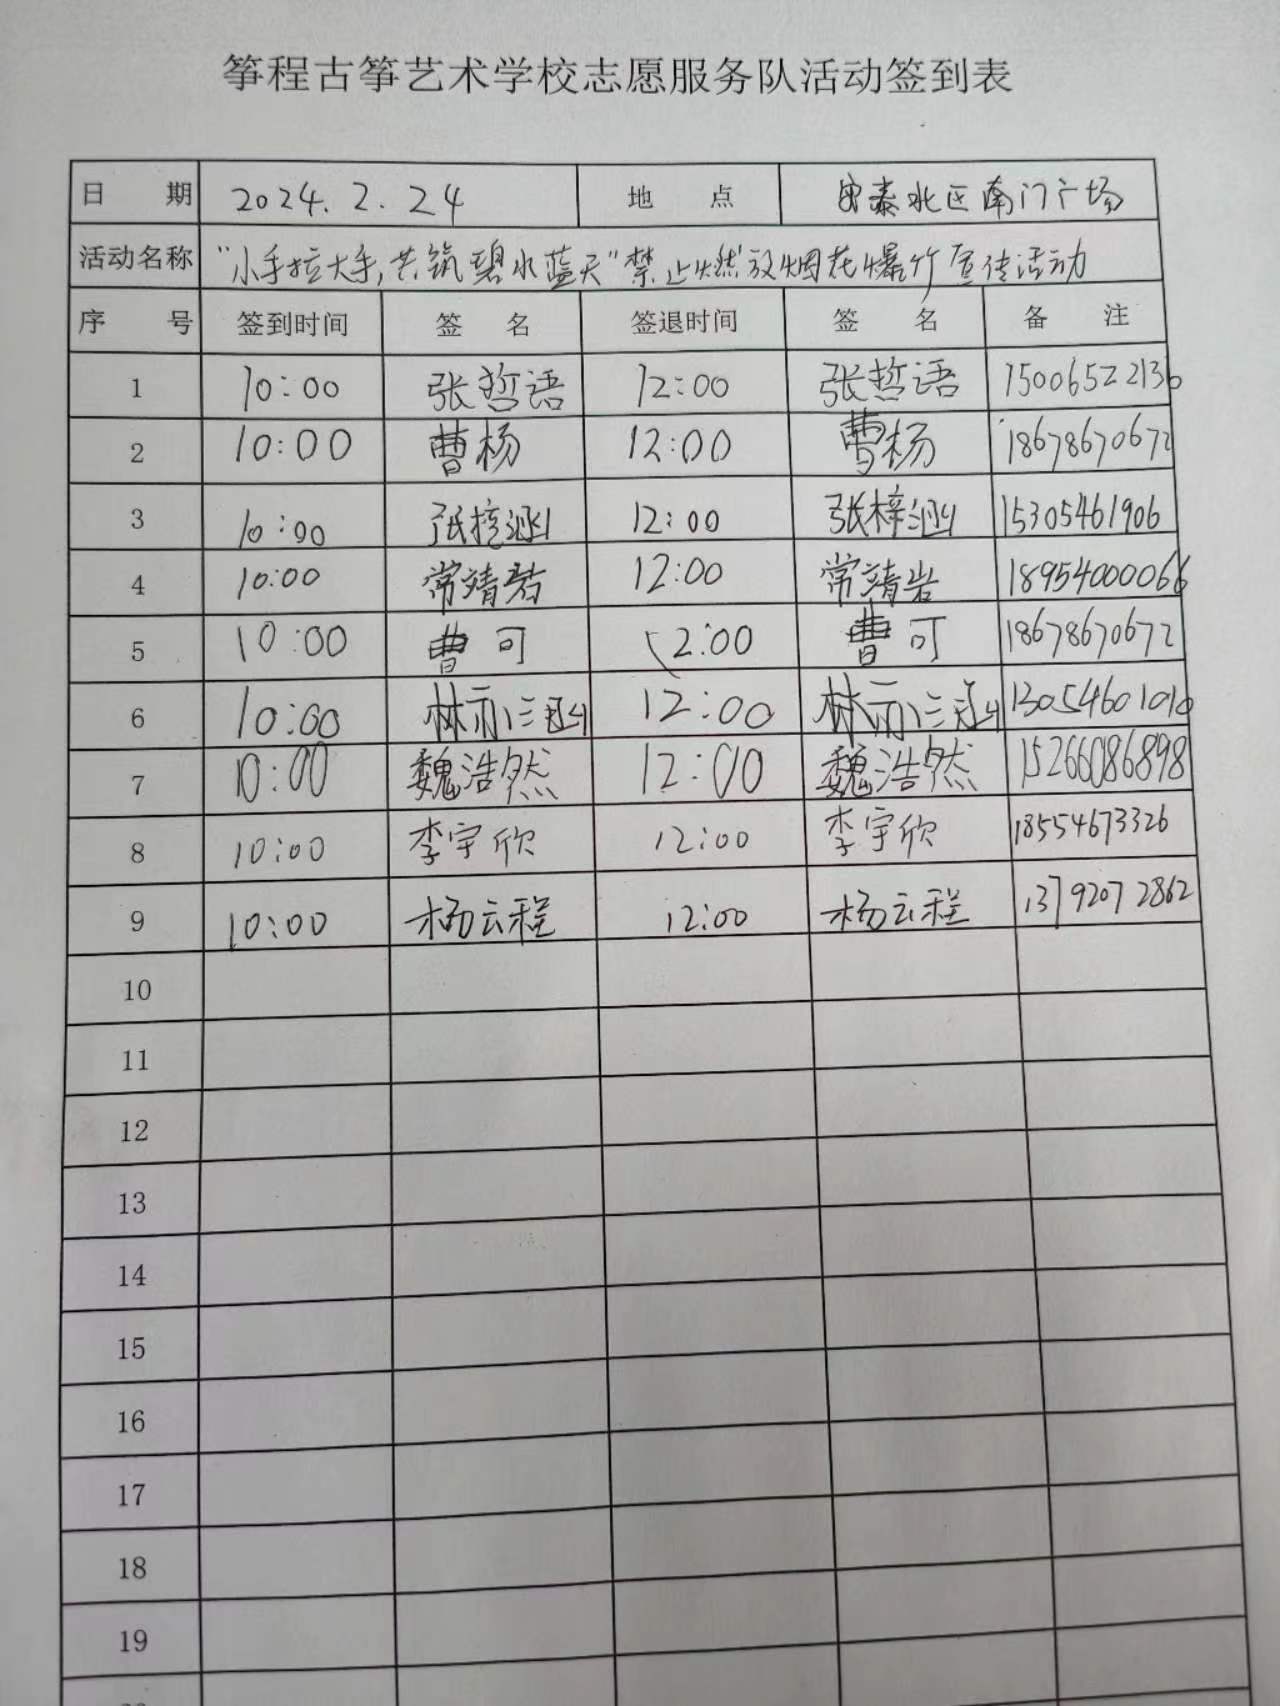 筝程古筝艺术学校志愿服务队活动签到表
日 期 2024.2.24 地 点 安泰北区南门广场
活动名称 "小手拉大手,共筑碧水蓝天"禁止燃放烟花爆竹宣传活动
序 号 签到时间 签 名 签退时间 签 名 备 注
1 10:00 张哲语 12:00 张哲语 15006522136
2 10:00 曹杨 12:00 曹杨 18678670672
3 10:00 张梓涵 12:00 张梓涵 15305461906
4 10:00 常靖岩 12:00 常靖岩 18954000066
5 10:00 曹可 12:00 曹可 18678670672
6 10:00 林亦涵 12:00 林亦涵
7 10:00 魏浩然 12:00 魏浩然 15266086898
8 10:00 李宇欣 12:00 李宇欣 18554673326
9 10:00 杨云程 12:00 杨云程 13792072862
10
11
12
13
14
15
16
17
18
19